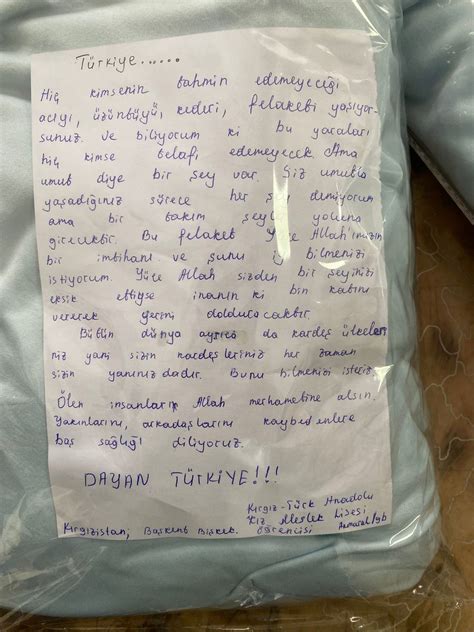 Türkiye......
Hiç kimsenin tahmin edemeyeceği
acıyı, üzüntüyü, kederi, felaketi yaşıyor-
sunuz. ve biliyorum ki bu yaraları
hiç kimse telafi edemeyecek. Ama
umut diye bir şey var. Siz umutla
yaşadığınız sürece her şey demiyorum
ama bir takım şeyler yoluna
girecektir. Bu felaket Yüce Allah'ımızın
bir imtihanı ve şunu iyi bilmenizi
istiyorum. Yüce Allah sizden bir şeyinizi
eksik ettiyse inanın ki bin katını
vererek geri dolduracaktır.
Bütün dünya ayrıca da kardeş ülkeleri
niz yani sizin kardeşleriniz her zaman
sizin yanınızdadır. Bunu bilmenizi isteriz.
Ölen insanların Allah merhametine alsın.
Yakınlarını, arkadaşlarını kaybedenlere
baş sağlığı diliyoruz.
DAYAN TÜRKİYE!!!
Kırgız-Türk Anadolu
Kız Meslek Lisesi
Kırgızistan, Başkent Bişkek. Öğrencisi